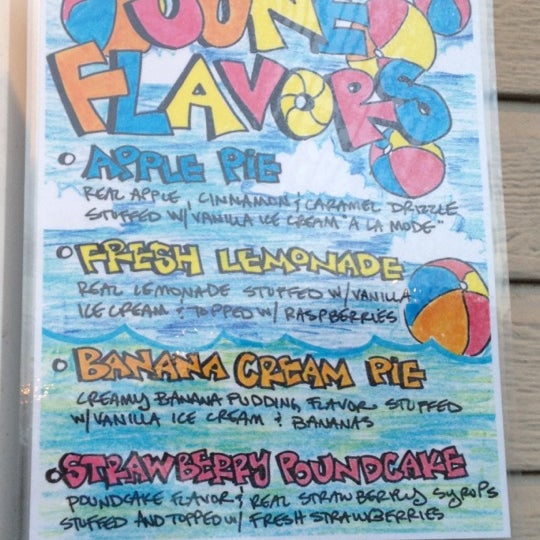 JUNE
FLAVORS
APPLE PIE
REAL APPLE, CINNAMON & CARAMEL DRIZZLE
STUFFED W/ VANILLA ICE CREAM "A LA MODE"
FRESH LEMONADE
REAL LEMONADE STUFFED W/ VANILLA
ICE CREAM & TOPPED W/ RASPBERRIES
BANANA CREAM PIE
CREAMY BANANA PUDDING FLAVOR STUFFED
W/ VANILLA ICE CREAM & BANANAS
STRAWBERRY POUNDCAKE
POUNDCAKE FLAVOR & REAL STRAWBERRY SYRUPS
STUFFED AND TOPPED W/ FRESH STRAWBERRIES